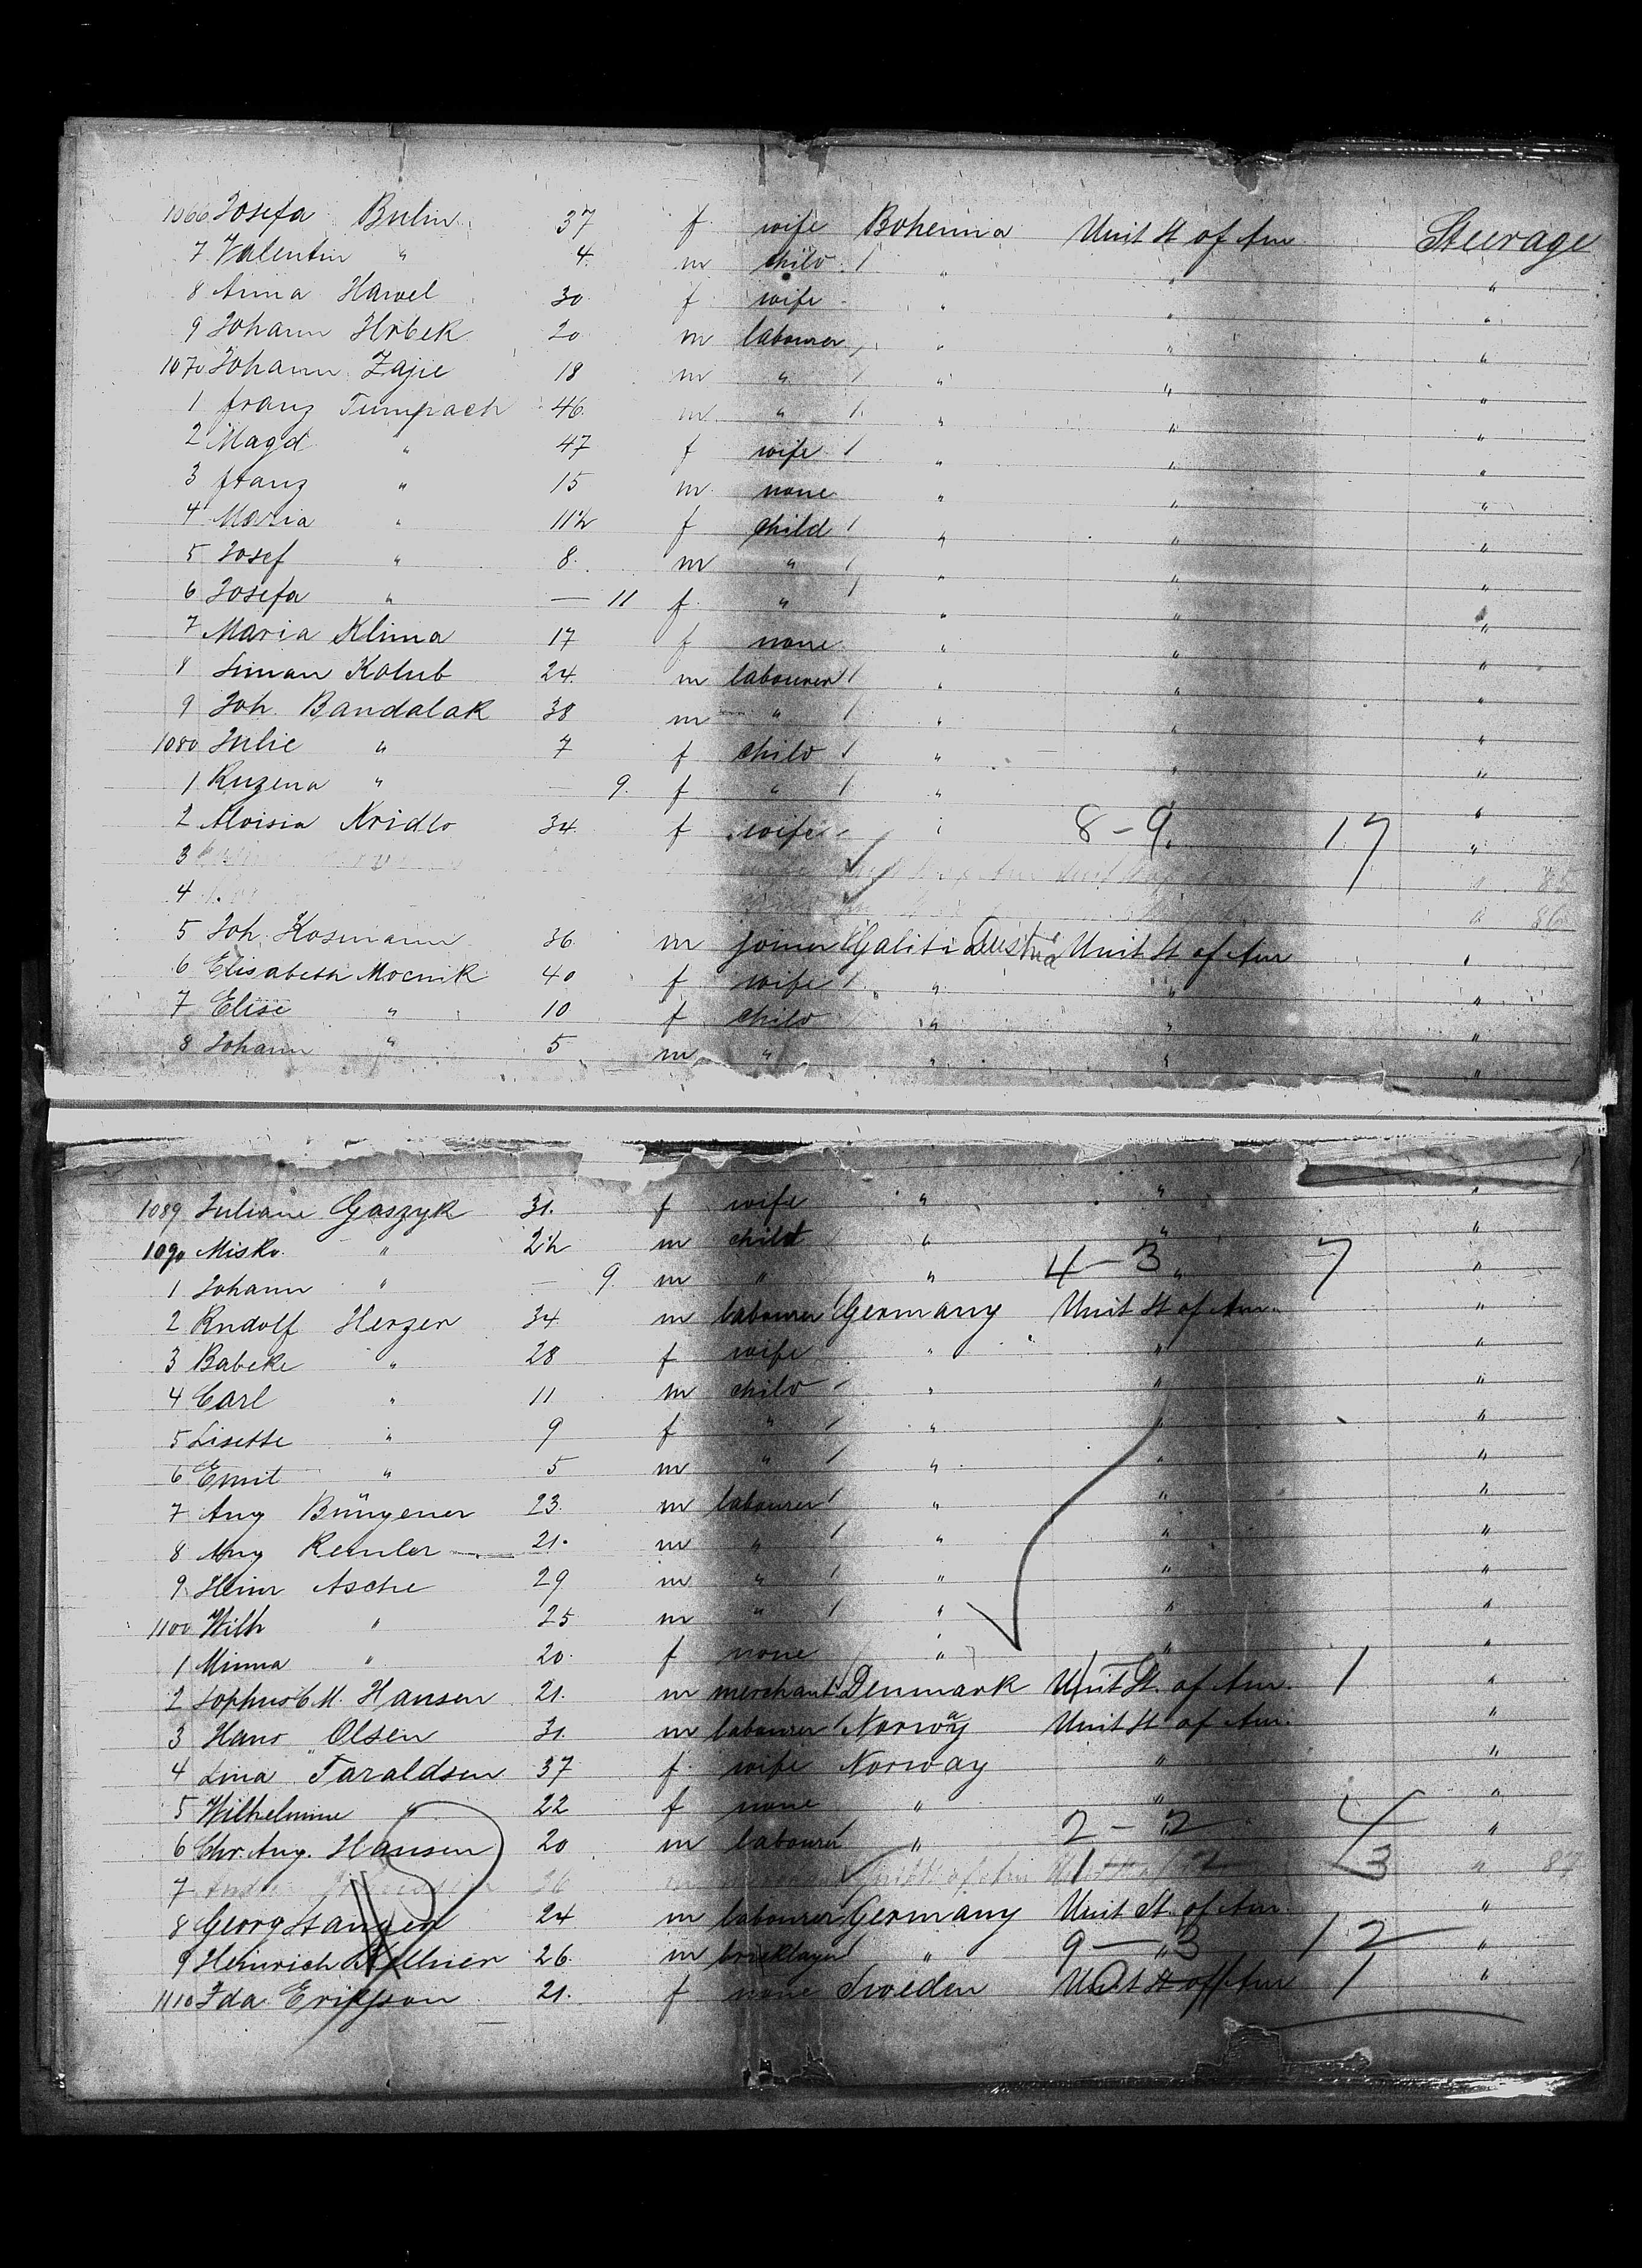 1066 Josefa Bulin 37 f wife Bohemia Unit St of Am Steerage
7 Valentin " 4 m child " " "
8 Anna Hawel 30 f wife " " "
9 Johann Hrbek 20 m labourer " " "
1070 Johann Zajic 18 m " " " "
1 Franz Tumpach 46 m " " " "
2 Magd " 47 f wife " " "
3 Franz " 15 m none " " "
4 Maria " 11½ f child " " "
5 Josef " 8 m " " " "
6 Josefa " — 11 f " " " "
7 Maria Klima 17 f none " " "
8 Siman Kolub 24 m labourer " " "
9 Joh. Bandalak 38 m " " " "
1080 Julie " 7 f child " " "
1 Ruzena " — 9 f " " " "
2 Aloisia Kridlo 34 f wife " 8-9 17 "
3 " 85
4 " 86
5 Joh. Kosmann 36 m joiner Galiti Austria Unit St of Am "
6 Elisabeth Mocnik 40 f wife " " "
7 Elise " 10 f child " " "
8 Johann " 5 m " " " "
1089 Juliane Gaszyk 31. f wife " " "
1090 Misko " 2½ m child " " "
1 Johann " — 9. m " " 4-3 " 7 "
2 Rudolf Herzer 34 m labourer Germany Unit St of Am. "
3 Babeke " 28 f wife " " "
4 Carl " 11 m child " " "
5 Lisette " 9 f " " " "
6 Emil " 5 m " " " "
7 Aug Büngener 23. m labourer " " "
8 Aug Remler 21. m " " " "
9 Heinr Asche 29 m " " " "
1100 Wilh " 25 m " " " "
1 Minna " 20. f none " " "
2 Sophus C M. Hansen 21. m merchant Denmark Unit St. of Am. 1 "
3 Hans Olsen 31. m labourer Norway Unit St of Am. "
4 Lina Taraldsen 37 f wife Norway " "
5 Wilhelmine " 22 f none " " "
6 Chr. Aug. Hansen 20 m labourer " 2-2 4 "
7 26 1-2 3 " 87
8 Georg 24 m labourer Germany Unit St. of Am. "
9 Heinrich 26. m bricklayer " 9-3 12 "
1110 Ida Eriksson 21. f none Sweden Unit St of Am 1 "